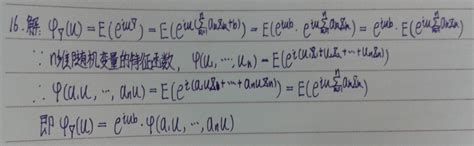 16.解: φ_Y(u) = E(e^{iuY}) = E(e^{iu(∑_{m=1}^{n} a_m X_m + b)}) = E(e^{iub}·e^{iu∑_{m=1}^{n} a_m X_m}) = e^{iub}·E(e^{iu∑_{m=1}^{n} a_m X_m})
∵ n维随机变量的特征函数, φ(u₁, ⋯, u_n) = E(e^{i(u₁X₁+u₂X₂+⋯+u_nX_n)})
∴ φ(a₁u, ⋯, a_nu) = E(e^{i(a₁uX₁+⋯+a_nuX_n)}) = E(e^{iu∑_{m=1}^{n} a_m X_m})
即 φ_Y(u) = e^{iub}·φ(a₁u, ⋯, a_nu)